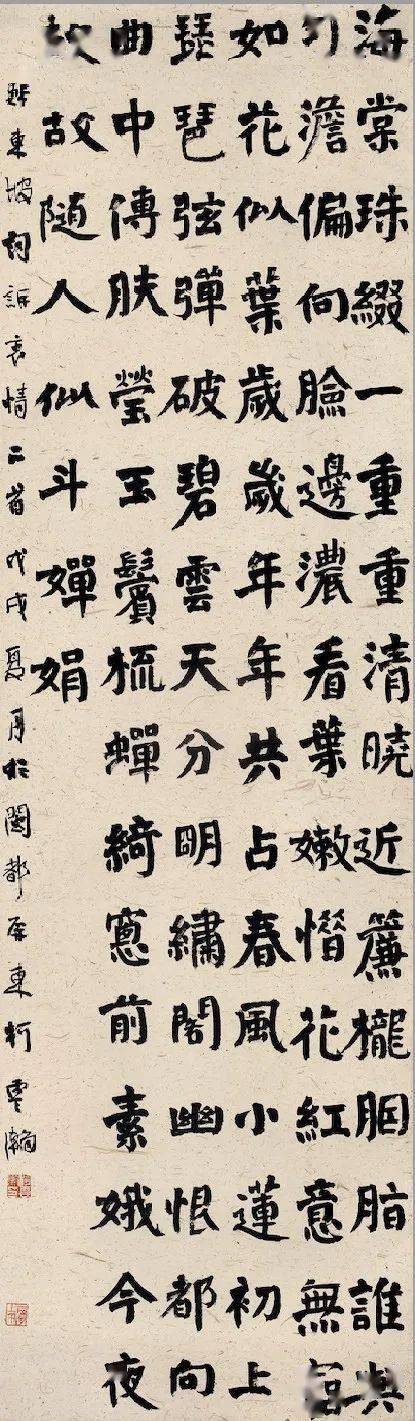 海棠珠綴一重重清曉近簾櫳胭脂誰與
勻澹偏向臉邊濃看葉嫩惜花紅意無
如花似葉歲歲年年共占春風小蓮初上
琵琶弦彈破碧雲天分明繡閣幽恨都向
曲中傳肤瑩玉鬢梳蟬綺窻前素娥今夜
故故隨人似斗嬋娟
東坡詞訴衷情二首戊戌夏月於閩都屏東柯雲瀚